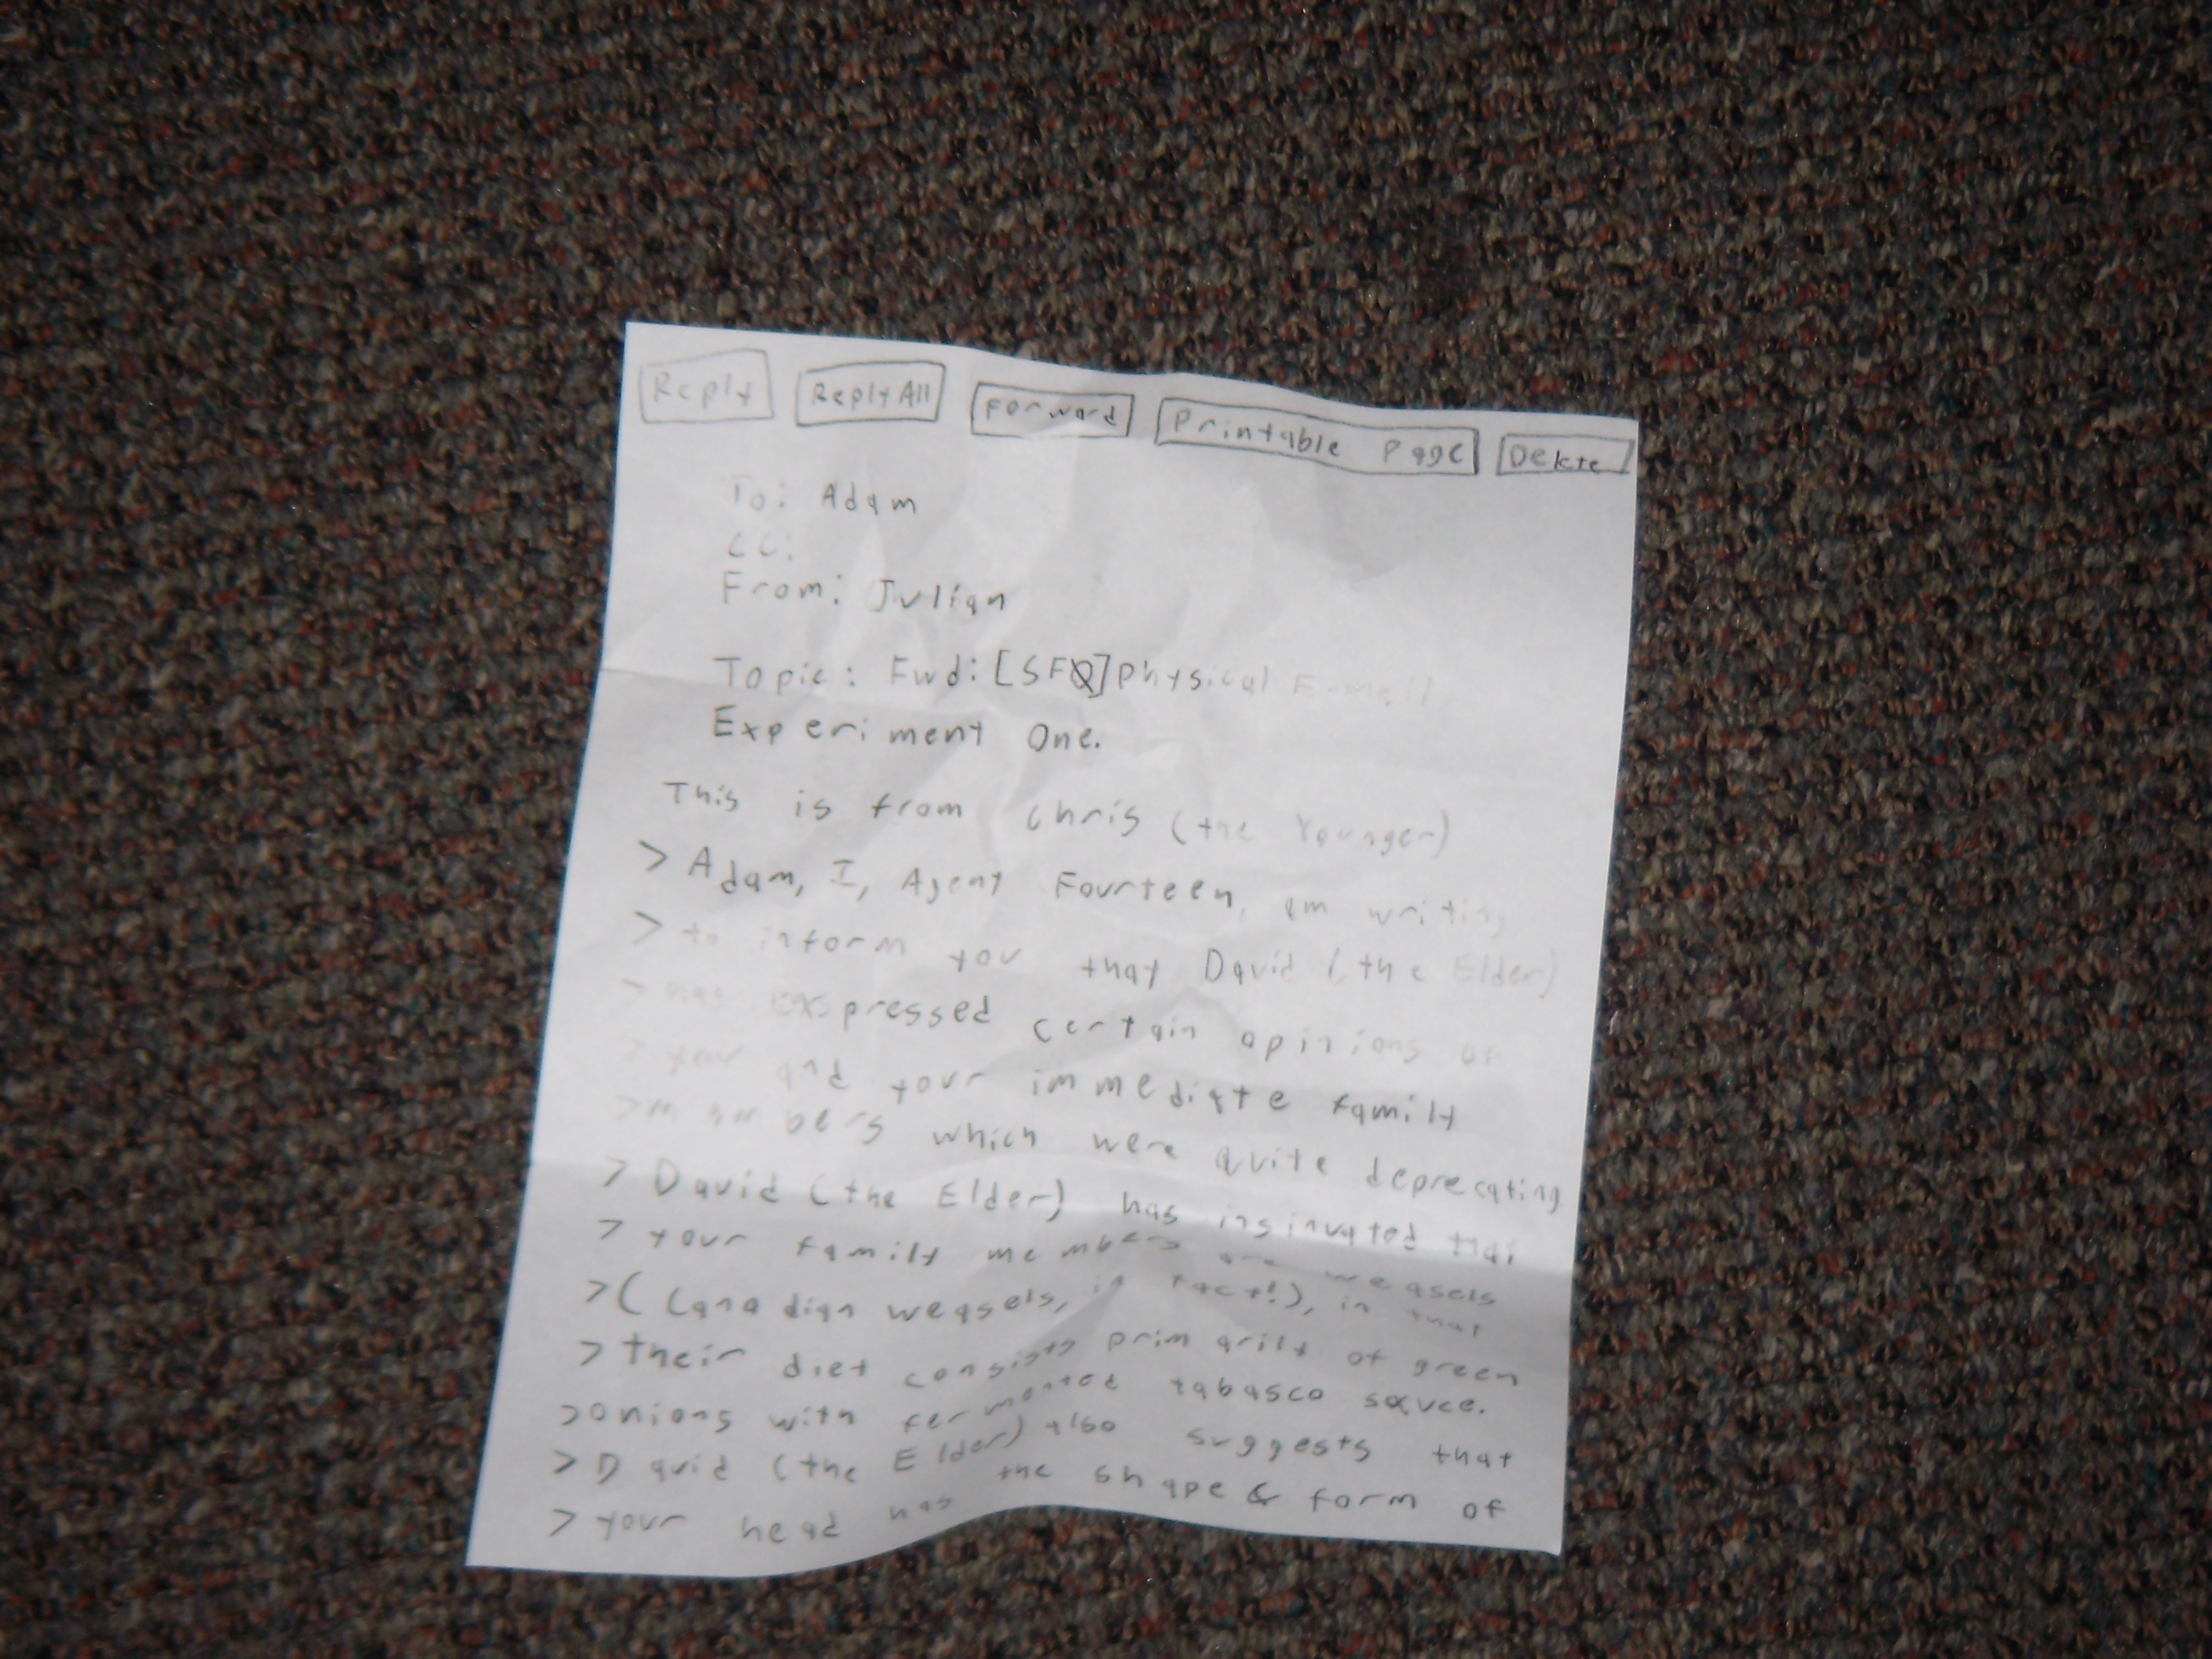 Reply Reply All Forward Printable Page Delete
To: Adam
CC:
From: Julian
Topic: Fwd: [SFQ] Physical E-mail
Experiment One.
This is from Chris (the Younger)
> Adam, I, Agent Fourteen, am writing
> to inform you that David (the Elder)
> has expressed certain opinions of
> your and your immediate family
> members which were quite deprecating
> David (the Elder) has insinuated that
> your family members are weasels
> (Canadian weasels, in fact!), in that
> their diet consists primarily of green
> onions with fermented tabasco sauce.
> David (the Elder) also suggests that
> your head has the shape & form of